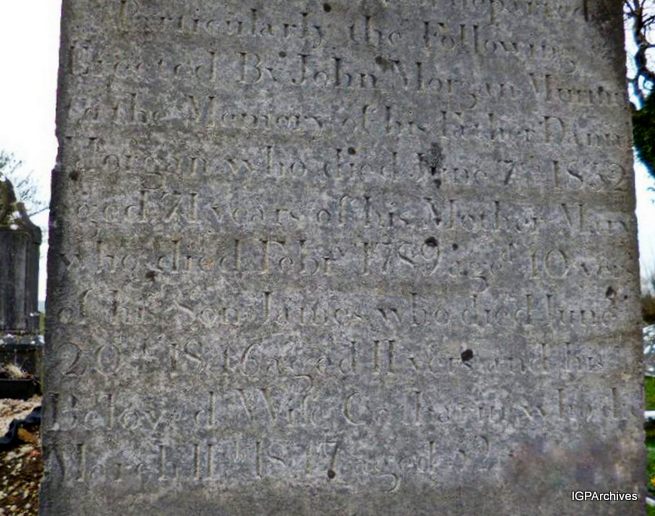 Particularly the Following
Erected By John Morgan
to the Memory of his Father
Morgan who died June 7th 1832
aged 71 years of his Mother Mary
who died Febr 1789 aged 40
of his Son James who died June
20th 1846 aged 11 yers and his
Beloved Wife who
March 11th 1847 aged
IGPArchives